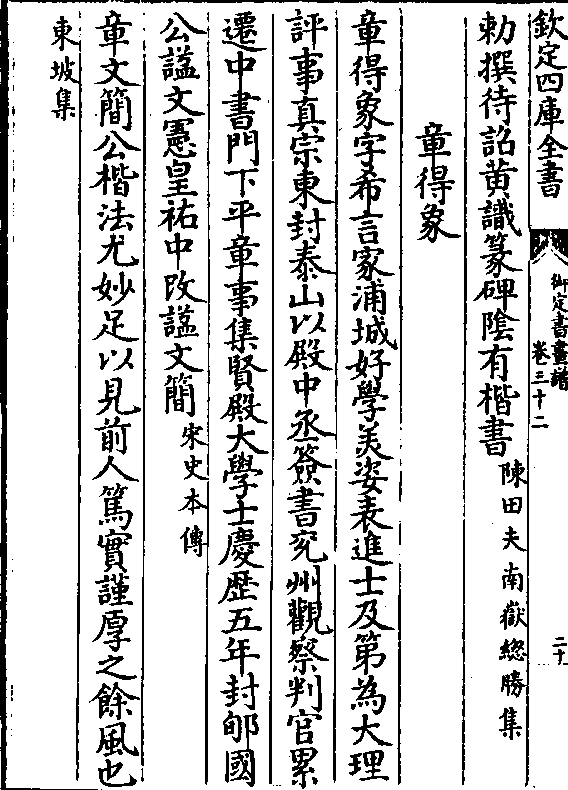 欽定四庫全書
御定書畫譜
卷三十二
二十
勅撰待詔黄識篆碑隂有楷書陳田夫南嶽緫勝集
章得象
章得象字希言家浦城好學美姿表進士及第為大理
評事真宗東封泰山以殿中丞簽書兖州觀察判官累
遷中書門下平章事集賢殿大學士慶歴五年封郇國
公諡文憲皇祐中改諡文簡宋史本傳
章文簡公楷法尤妙足以見前人篤實謹厚之餘風也
東坡集